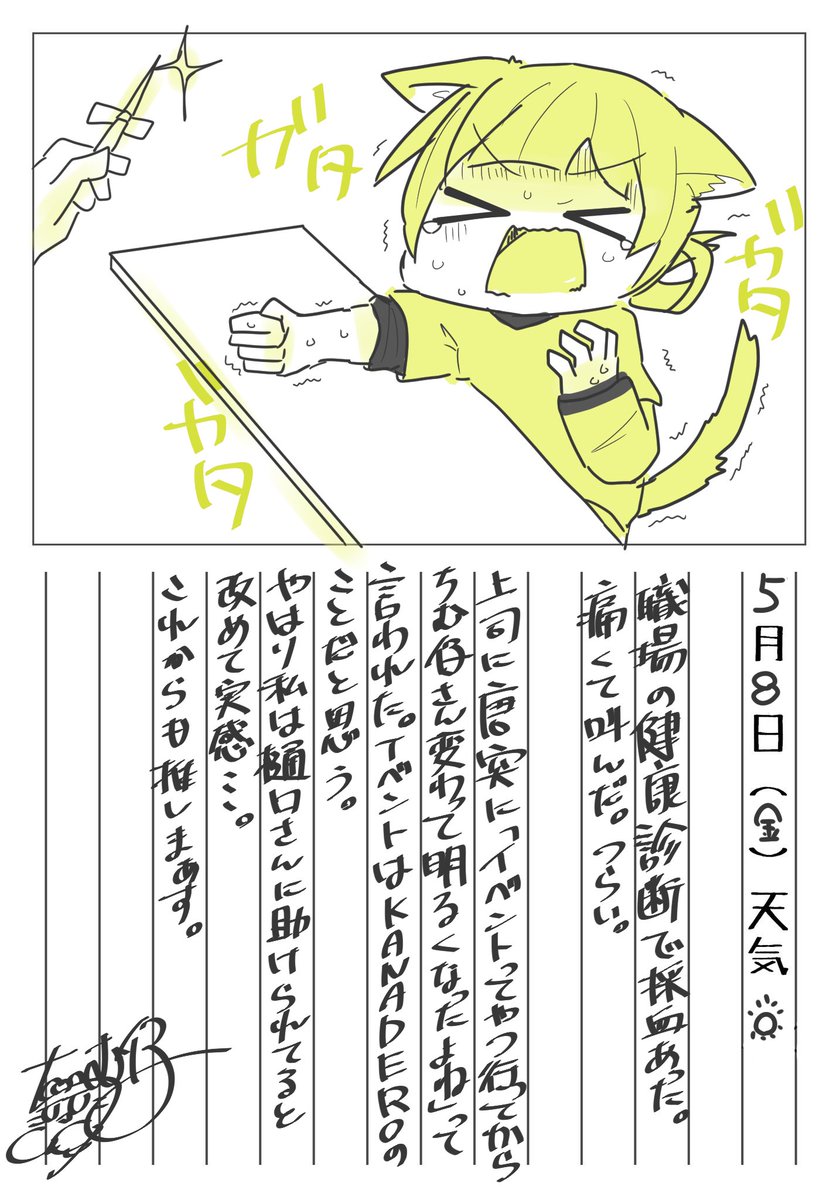 ガタ
ガタ
ガタ
5月8日(金)天気
職場の健康診断で採血あった。
痛くて叫んだ。つらい。
上司に唐突に「イベントってやつ行ってから
ちむ母さん変わって明るくなったよね」って
言われた。イベントはKANADEROの
ことだと思う。
やはり私は樋口さんに助けられてると
改めて実感…。
これからも推しまぁす。